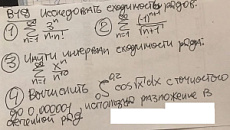 В-18 Исследовать сходимость рядов:
① ∞ ∑ n=1 3ⁿ / n·n! ② ∞ ∑ n=1 (-1)ⁿ⁺¹ / √(n+1)
③ Найти интервал сходимости ряда:
∞ ∑ n=1 xⁿ / n¹⁰
④ Вычислить ∫ 0,2 cos√x dx с точностью
до 0,00001, используя разложение в
степенной ряд.